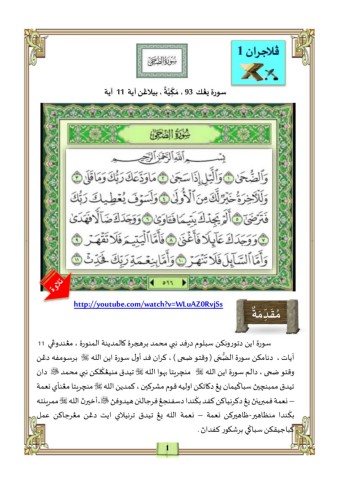 ڤلاجرن 1
سُوْرَةُ الضُّحَى
سورة يڠك 93 ، مَكِّيَّةٌ ، بيلاڠن آية 11 آية
سُوْرَةُ الضُّحَى
بِسْمِ اللَّهِ الرَّحْمَٰنِ الرَّحِيمِ
وَالضُّحَىٰ ١ وَاللَّيْلِ إِذَا سَجَىٰ ٢ مَا وَدَّعَكَ رَبُّكَ وَمَا قَلَىٰ ٣
وَلَلْآخِرَةُ خَيْرٌ لَّكَ مِنَ الْأُولَىٰ ٤ وَلَسَوْفَ يُعْطِيكَ رَبُّكَ
فَتَرْضَىٰ ٥ أَلَمْ يَجِدْكَ يَتِيمًا فَآوَىٰ ٦ وَوَجَدَكَ ضَالًّا فَهَدَىٰ
٧ وَوَجَدَكَ عَائِلًا فَأَغْنَىٰ ٨ فَأَمَّا الْيَتِيمَ فَلَا تَقْهَرْ ٩
وَأَمَّا السَّائِلَ فَلَا تَنْهَرْ ١٠ وَأَمَّا بِنِعْمَةِ رَبِّكَ فَحَدِّثْ ١١
٥٩٦
تلاوة
http://youtube.com/watch?v=WLuAZ0RvjSs
مُقَدِّمَةٌ
سورة اين دتورونکن سبلوم درفد نبي محمد برهجرة كالمدينة المنورة ، مڠندوڠي 11
آيات ، دنامکن سورة الضُّحَى ( وقتو ضحى ) ، كران فد أول سورة اين الله ﷻ برسومفه دڠن
وقتو ضحى ، دالم سورة اين الله ﷻ منچريتا بهوا الله ﷻ تيدق منيڠݢلکن نبي محمد ﷺ دان
تيدق ممبنچين سباݢيمان يڠ دكاتکن اوليه قوم مشركين ، كمدين الله ﷻ منچريتا مڠنأي نعمة
– نعمة فمبرين يڠ دكرنياکن كفد بݢيندا دسفنجڠ فرجالنن هيدوفن ﷺ، أخيرڽ الله ﷻ ممرينته
بݢيندا منظاهير-ظاهيرکن نعمة – نعمة الله يڠ تيدق ترنيلاي ايت دڠن مڠرجاکن عمل
كباجيقکن سباݢي برشكور كفدان .
1